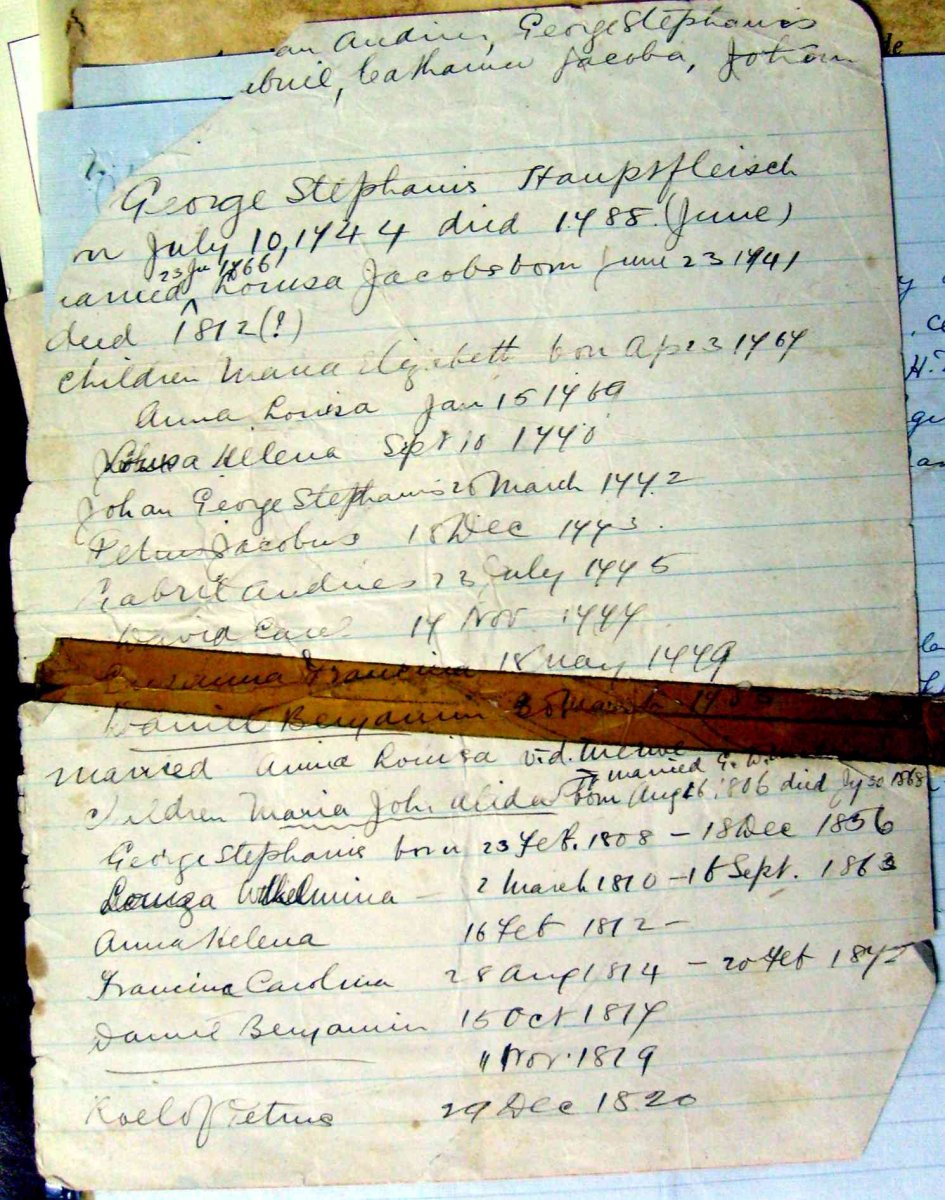 an Andries, George Stephanis
briel, Catharina Jacoba, Johan
de
George Stephanis Hauptfleisch
rn July 10, 1744 died 1788. (June)
23 Ju 1766
arried Louisa Jacobs born June 23 1741
died 1812 (?)
Children Maria Elizabeth born Ap 23 1767
Anna Louisa Jan 15 1769
Louisa Helena Sept 10 1770
Johan George Stephanis 20 March 1772
Petrus Jacobus 18 Dec 1773.
Gabriel Andries 23 July 1775
David Carel 17 Nov 1777
Susanna Francina 18 May 1779
Daniel Benjamin 30 March 17
Married Anna Louisa v.d. Merwe
married G. W.
Children Maria Joh. Alida born Aug 26 1806 died Jy 30 1868
George Stephanis born 23 Feb. 1808 – 18 Dec 1856
Louiza Wilhelmina – 2 March 1810 – 16 Sept. 1863
Anna Helena 16 Feb 1812 –
Francina Carolina 28 Aug 1814 – 20 Feb 1872
Daniel Benjamin 15 Oct 1817
" Nov. 1819
Roelof Petrus 29 Dec 1820